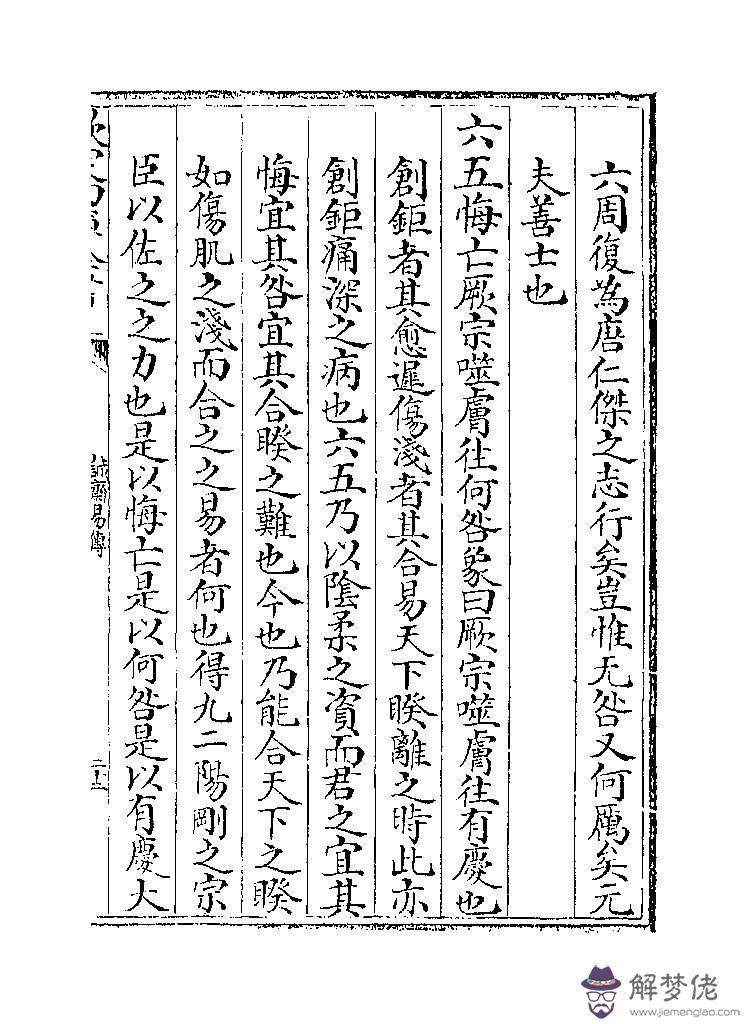 六周復為唐仁傑之志行矣豈惟无咎又何厲矣元
夫善士也
六五悔亡厥宗噬膚往何咎象曰厥宗噬膚往有慶也
創鉅者其愈遲傷淺者其合易天下睽離之時此亦
創鉅痛深之病也六五乃以陰柔之資而君之宜其
悔宜其咎宜其合睽之難也今也乃能合天下之睽
如傷肌之淺而合之之易者何也得九二陽剛之宗
臣以佐之之力也是以悔亡是以何咎是以有慶大
誠齋易傳
二五
解梦佬
www.jiemenglao.com